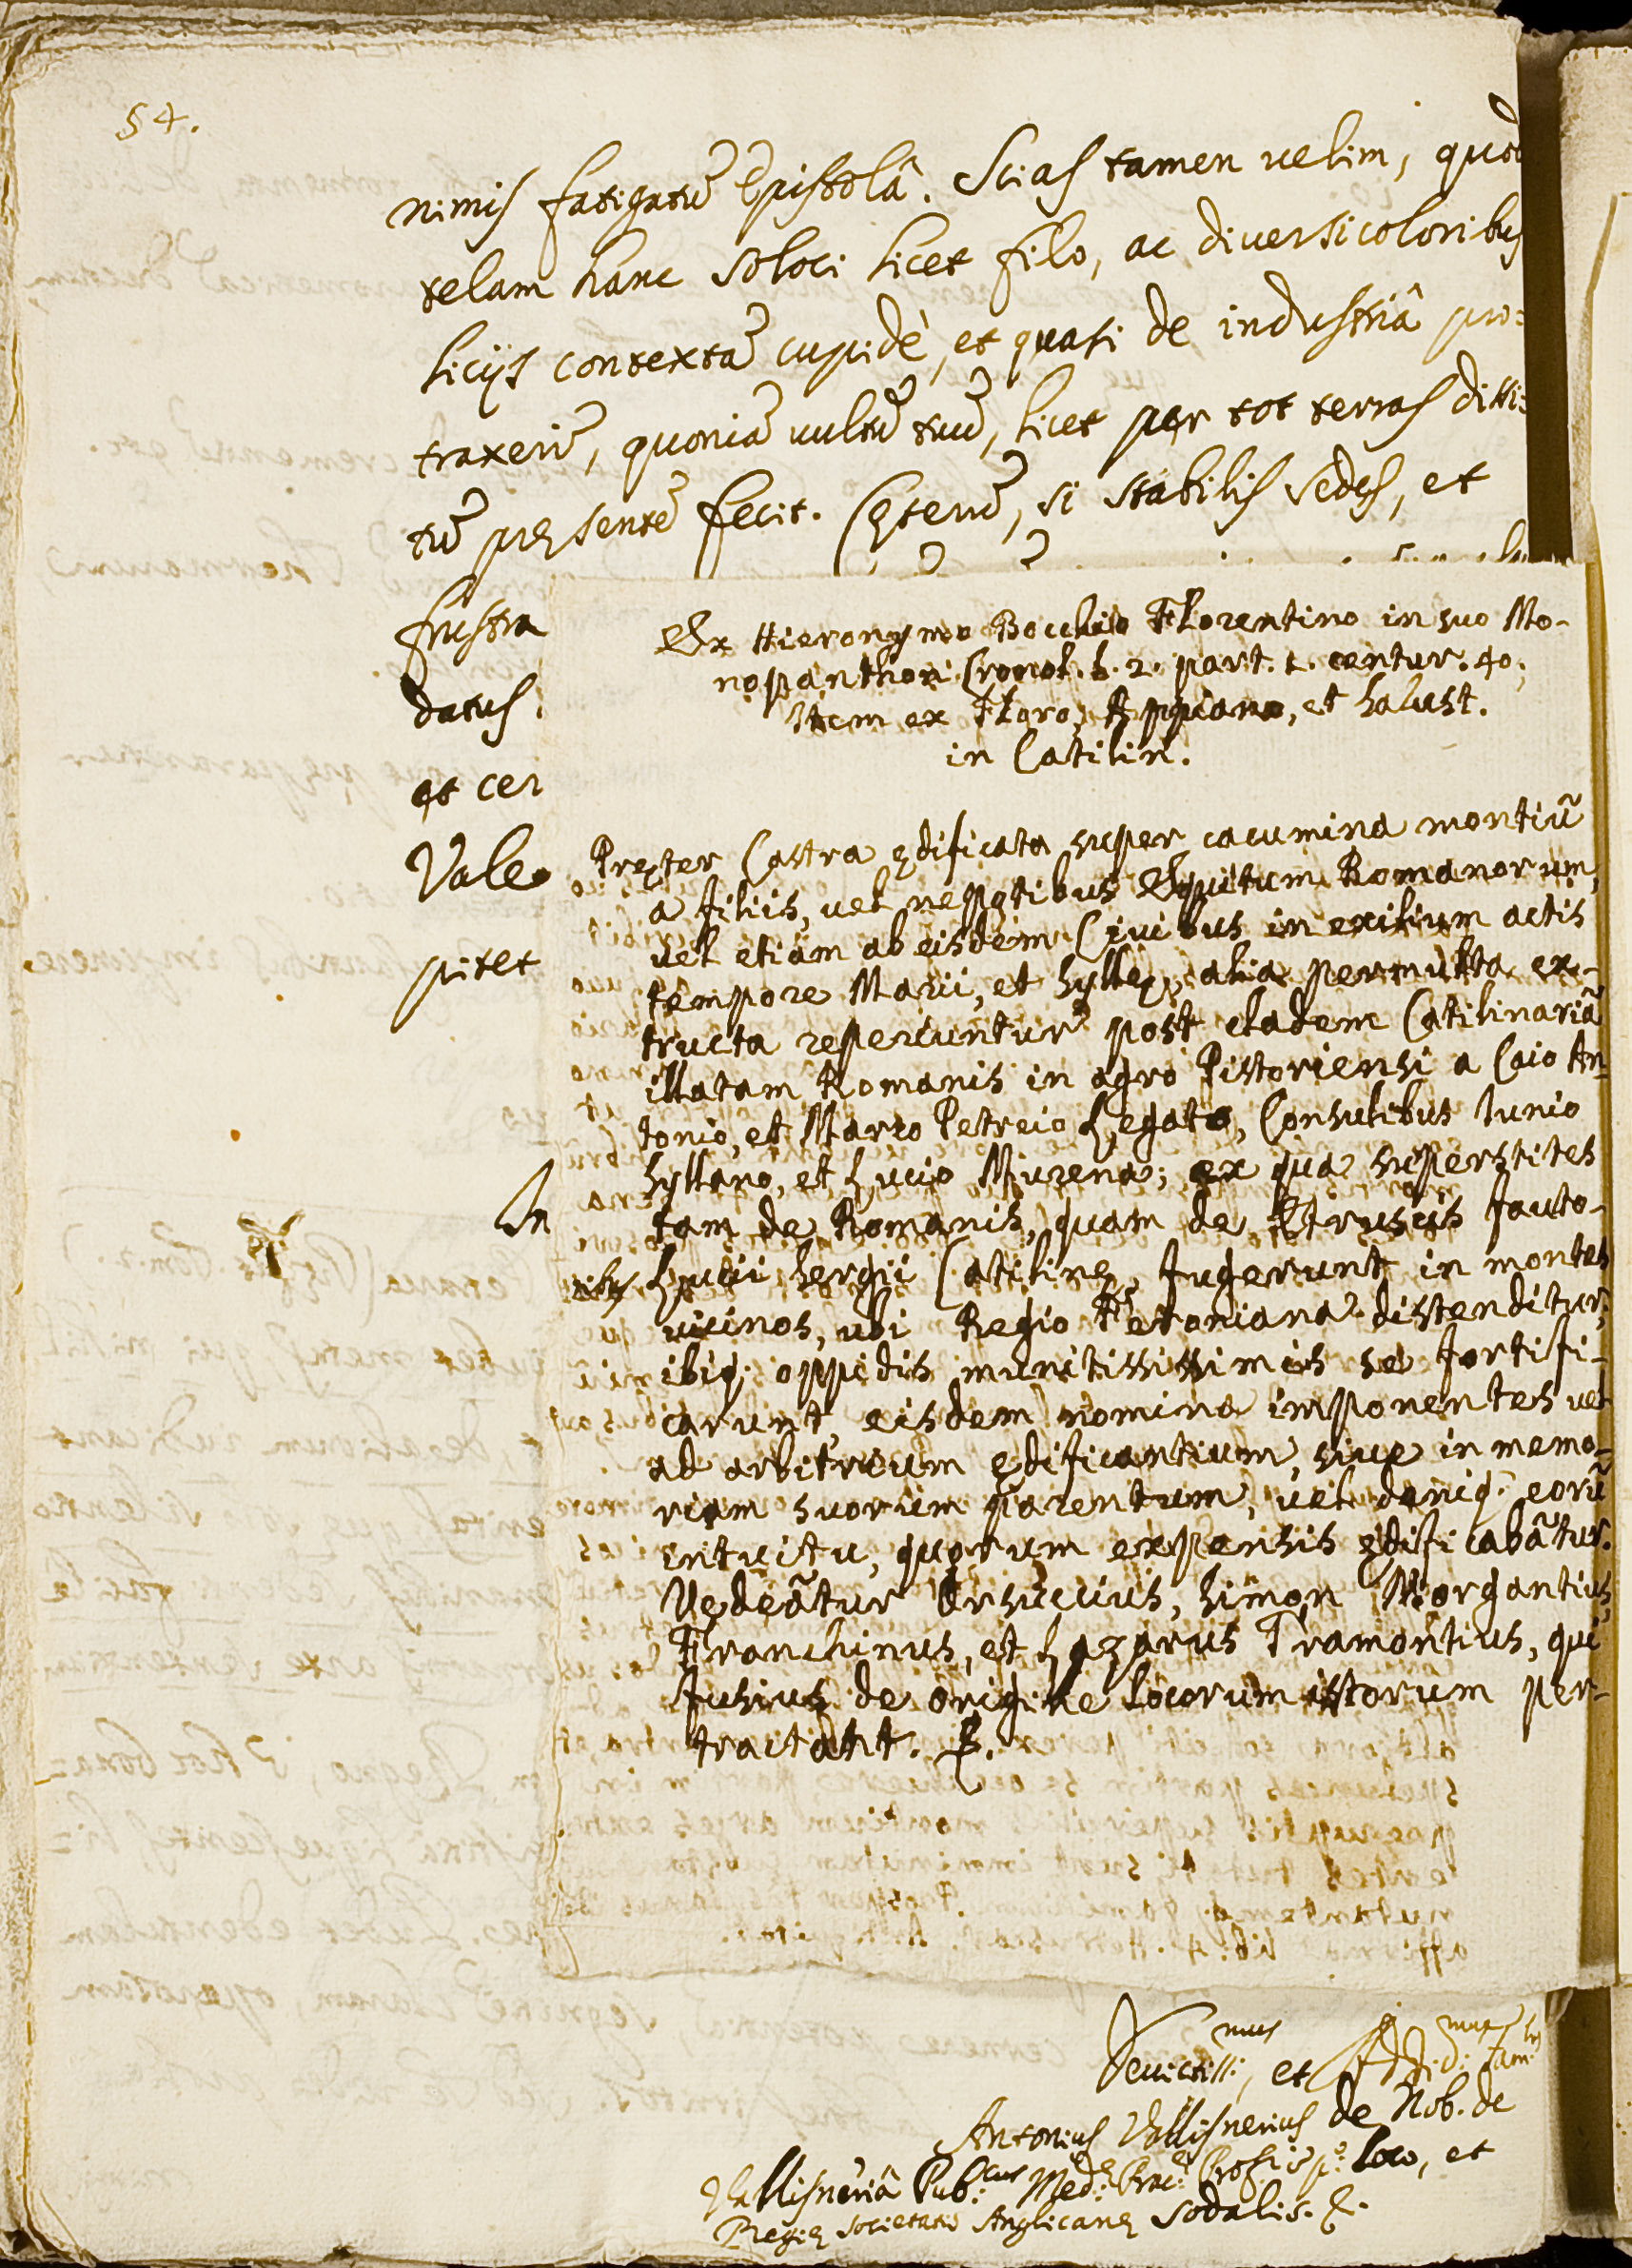 54.
nimis fatigatũ Epistolâ. Scias tamen uelim, quod
telam hanc soloci licet filo, ac diuersicoloribus
licijs contextã cupidè, et quasi de industriâ pro=
traxerĩ, quoniã uultũ tuũ, licet per tot terras dissi=
tũ pręsentẽ fecit. Cęterũ, si stabilis sedes, et
frustra
datus,
et cer
Vale
pitet
In
Ex Hieronymo Bocchio Florentino in suo Mo-
nopanthon Cronol. l. 2. part. 1. centur. 40;
Item ex Floro, Appiano, et Salust.
in Catilin.
Pręter Castra ędificata super cacumina montiũ
a filiis, uel nepotibus Equitum Romanorum,
uel etiam ab eisdem Ciuibus in exilium actis
tempore Marii, et Syllę, alia permulta ex-
tructa reperiuntur post cladem Catilinariã
illatam Romanis in agro Pistoriensi a Caio An-
tonio, et Marco Petreio Legato, Consulibus Iunio
Syllano, et Lucio Murena; ex qua superstites
tam de Romanis, quam de Etruscis fauto-
ribus Lucii Sergii Catilinę, fugerunt in montes
uicinos, ubi Regio Feroniana distenditur;
ibiq; oppidis munitississimis se fortifi-
carunt, eisdem nomina imponentes uel
ad arbitrium ędificantium, siue in memo-
riam suorum parentum, uel deniq; eorũ
intuitu, quorum expensis ędificabãtur.
Vedeãtur Orsuccius, Simon Morgantius,
Franchinus, et Lazarus Tramontius, qui
fusius de origine locorum istorum per-
tractant. &.
Deuictiss:mus, et Add:mus fam:lus
Antonius Vallisnerius de Nob. de
Vallisneriâ Pub:cus Med: Prac: Prof: in p:o loco, et
Regię Societatis Anglicanę Sodalis. &.